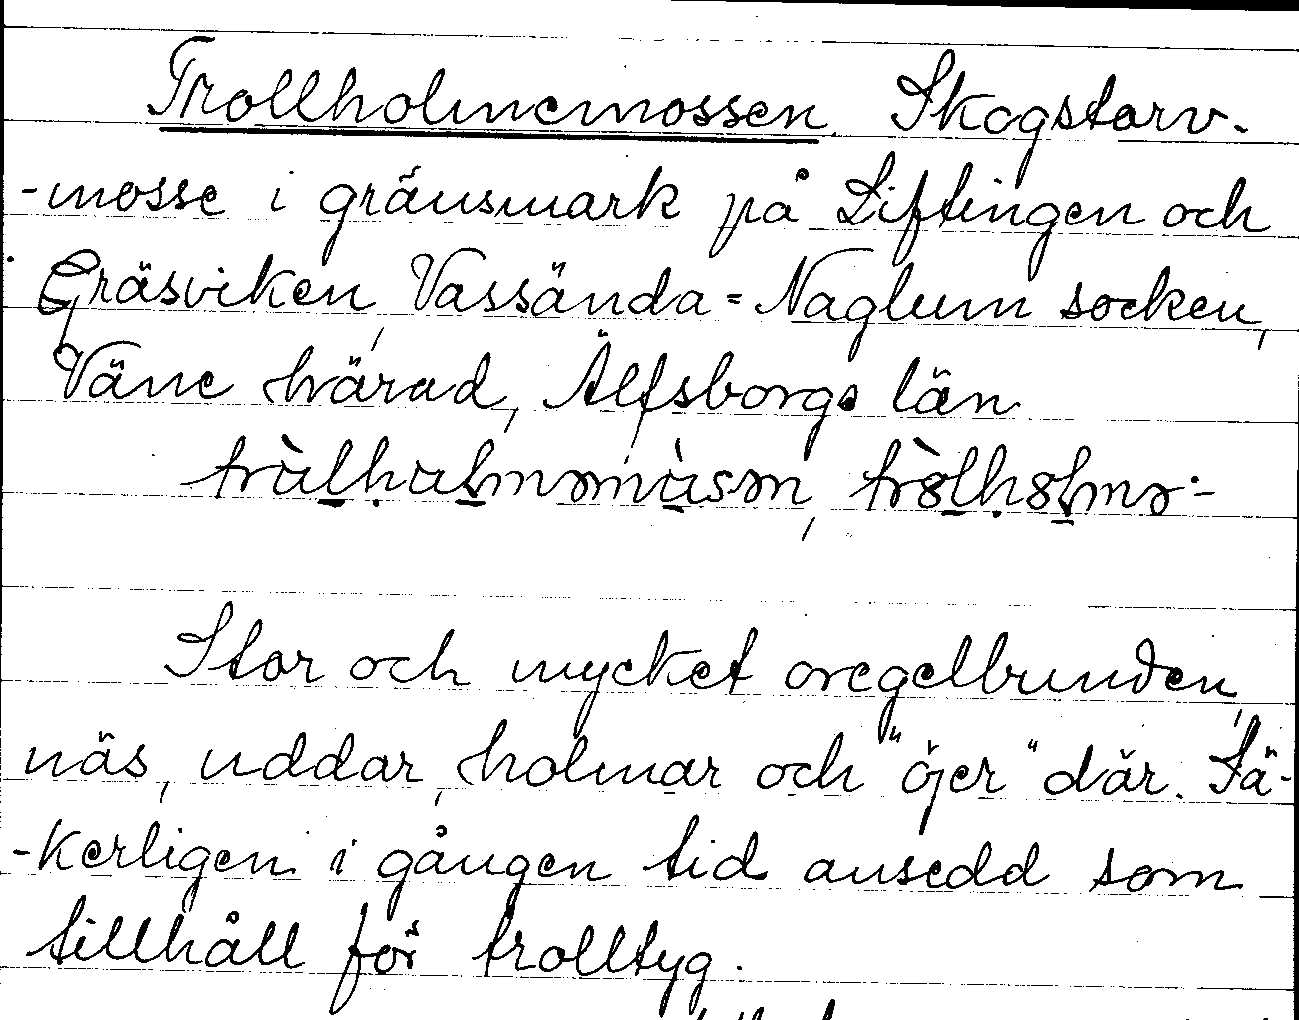 Trollholmemossen. Skogstorv-
-mosse i gränsmark på Liftingen och
Gräsviken, Vassända-Naglum socken,
Väne härad, Älfsborgs län
Stor och mycket oregelbunden,
näs, uddar, holmar och "öjer" där. Sä-
-kerligen i gången tid ansedd som
tillhåll för trolltyg.